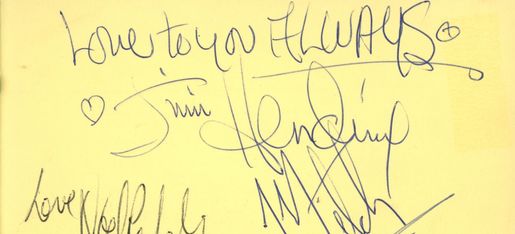 Love to you ALWAYS
Jimi Hendrix
Love Noel
Mitch